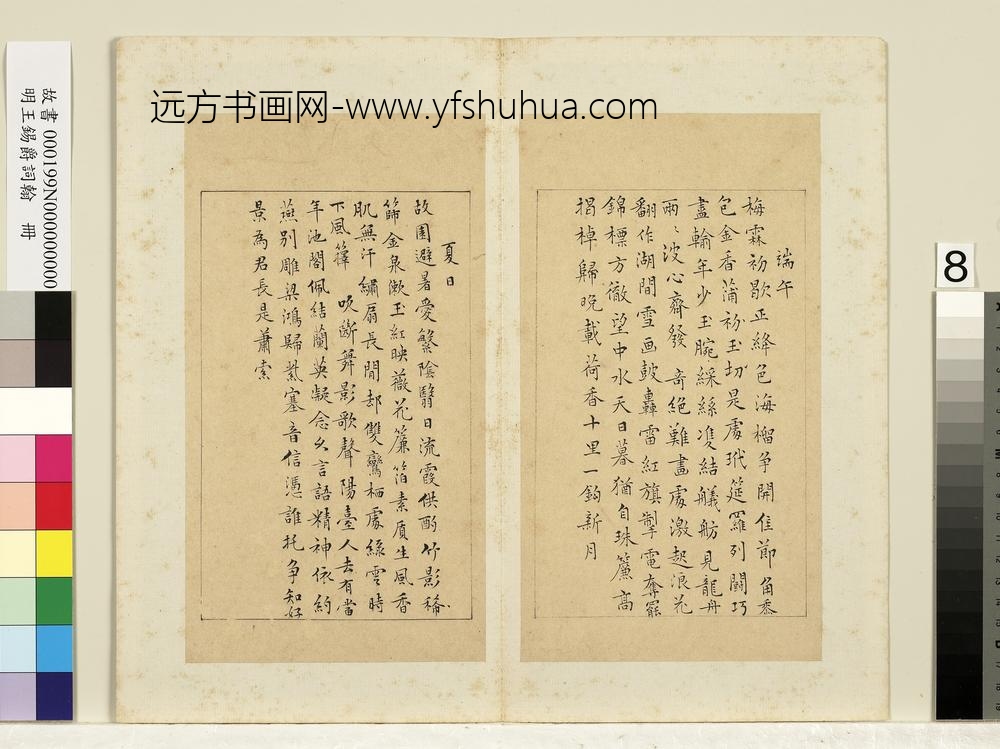 远方书画网-www.yfshuhua.com
故書 000199N000000000
明王錫爵詞翰 冊
8
端午
梅霖初歇正絳色海榴争開佳節角黍
包金香蒲㓜玉切是處玳筵羅列鬬巧
盡輸年少玉腕綵絲雙結艤舫見龍舟
兩〻波心齊發 奇絶難畫處激起浪花
翻作湖間雪画鼓轟雷紅旗掣電奪罷
錦標方徹望中水天日暮猶自珠簾高
揭棹歸晚載荷香十里一鈎新月
夏日
故園避暑愛繁陰翳日流霞供酌竹影稀
篩金泉漱玉紅映薇花簾箔素質生風香
肌無汗繡扇長閒却雙鸞栖處綠雲時
下風籜 吹斷舞影歌聲陽臺人去有當
年池閣佩結蘭英凝念久言語精神依約
燕别雕梁鴻歸紫塞音信憑誰托争知好
景為君長是蕭索